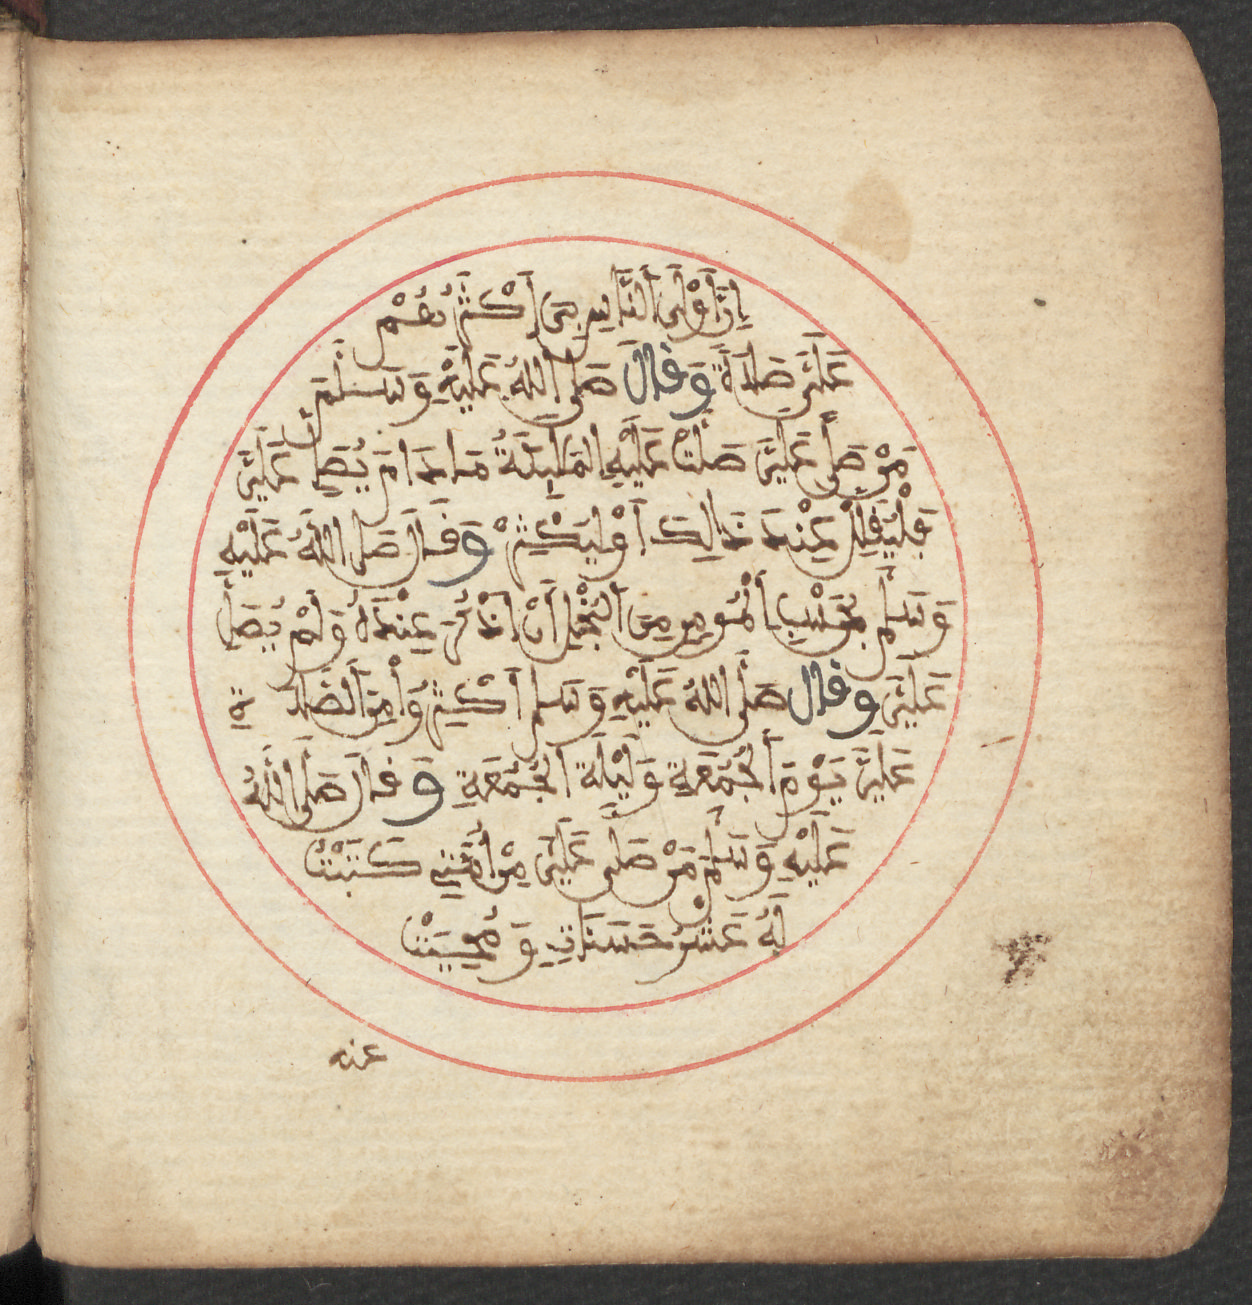 إِنَّ أَوْلَى النَّاسِ بِي أَكْثَرُهُمْ
عَلَيَّ صَلَاةً وَقَالَ صَلَّى اللهُ عَلَيْهِ وَسَلَّمَ
مَنْ صَلَّى عَلَيَّ صَلَّتْ عَلَيْهِ الْمَلَئِكَةُ مَا دَامَ يُصَلِّ عَلَيَّ
فَلْيُقْلِلْ عِنْدَ ذَالِكَ أَوْ لِيَكْثِرْ وَقَالَ صَلَّى اللهُ عَلَيْهِ
وَسَلَّمَ بِحَسْبِ الْمُومِنِ مِنَ الْبُخْلِ أَنْ أُذْكَرَ عِنْدَهُ وَلَمْ يُصَلِّ
عَلَيَّ وَقَالَ صَلَّى اللهُ عَلَيْهِ وَسَلَّمَ أَكْثِرُوا مِنَ الصَّلَاةِ
عَلَيَّ يَوْمَ الْجُمُعَةِ وَلَيْلَةَ الْجُمُعَةِ وَقَالَ صَلَّى اللهُ
عَلَيْهِ وَسَلَّمَ مَنْ صَلَّى عَلَيَّ مِنْ أُمَّتِي كَتَبَتْ
لَهُ عَشْرُ حَسَنَاتٍ وَمُحِيَتْ
عنه